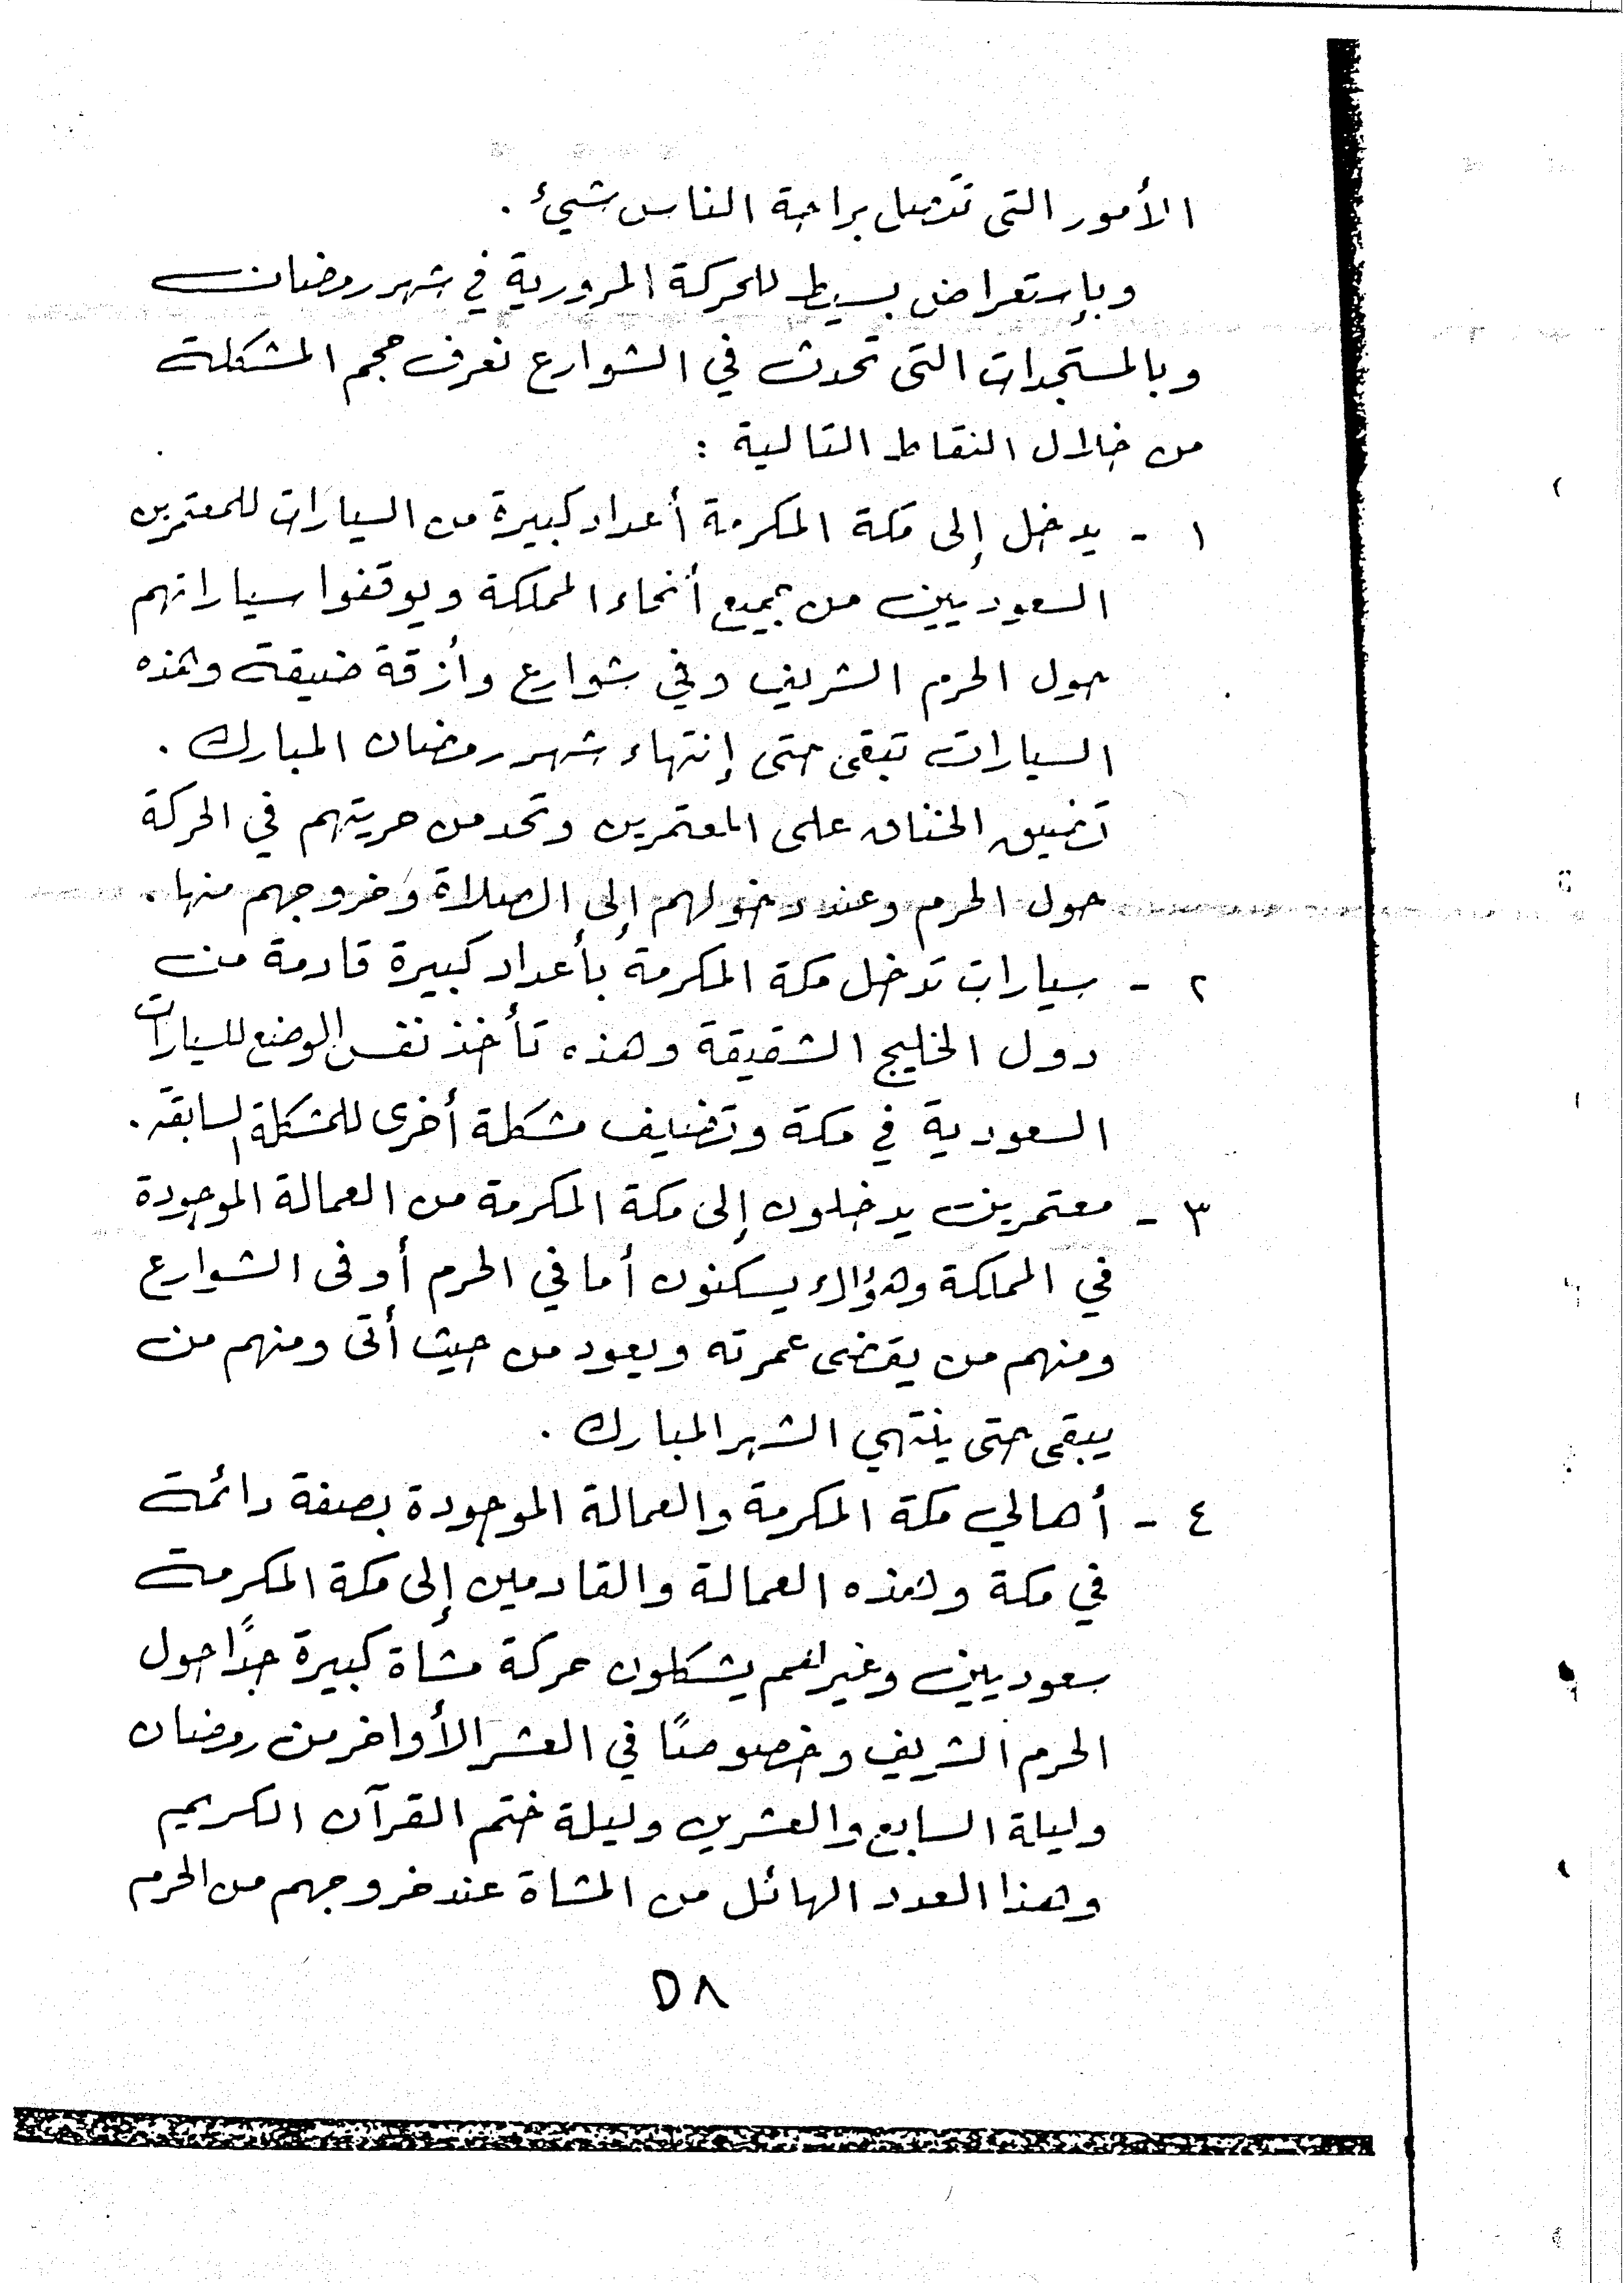 الأمور التى تتصل براحة الناس بشيئ .
وبإستعراض بسيط للحركة المرورية في شهر رمضان
وبالمستجدات التى تحدث في الشوارع نعرف حجم المشكلة
من خلال النقاط التالية :
١ - يدخل إلى مكة المكرمة أعداد كبيرة من السيارات للمعتمرين
السعوديين من جميع أنحاء المملكة ويوقفوا سياراتهم
حول الحرم الشريف وفي شوارع وأزقة ضيقة وهذه
السيارات تبقى حتى إنتهاء شهر رمضان المبارك .
تضييق الخناق على المعتمرين وتحد من حريتهم في الحركة
حول الحرم وعند دخولهم إلى الصلاة وخروجهم منها .
٢ - سيارات تدخل مكة المكرمة بأعداد كبيرة قادمة من
دول الخليج الشقيقة وهذه تأخذ نفس الوضع للسيارات
السعودية في مكة وتضيف مشكلة أخرى للمشكلة السابقة .
٣ - معتمرين يدخلون إلى مكة المكرمة من العمالة الموجودة
في المملكة وهؤلاء يسكنون أما في الحرم أو فى الشوارع
ومنهم من يقضى عمرته ويعود من حيث أتى ومنهم من
يبقى حتى ينتهي الشهر المبارك .
٤ - أهالي مكة المكرمة والعمالة الموجودة بصفة دائمة
في مكة وهذه العمالة والقادمين إلى مكة المكرمة
سعوديين وغيرهم يشكلون حركة مشاة كبيرة جدًا حول
الحرم الشريف وخصوصًا في العشر الأواخر من رمضان
وليلة السابع والعشرين وليلة ختم القرآن الكريم
وهذا العدد الهائل من المشاة عند خروجهم من الحرم
٥٨